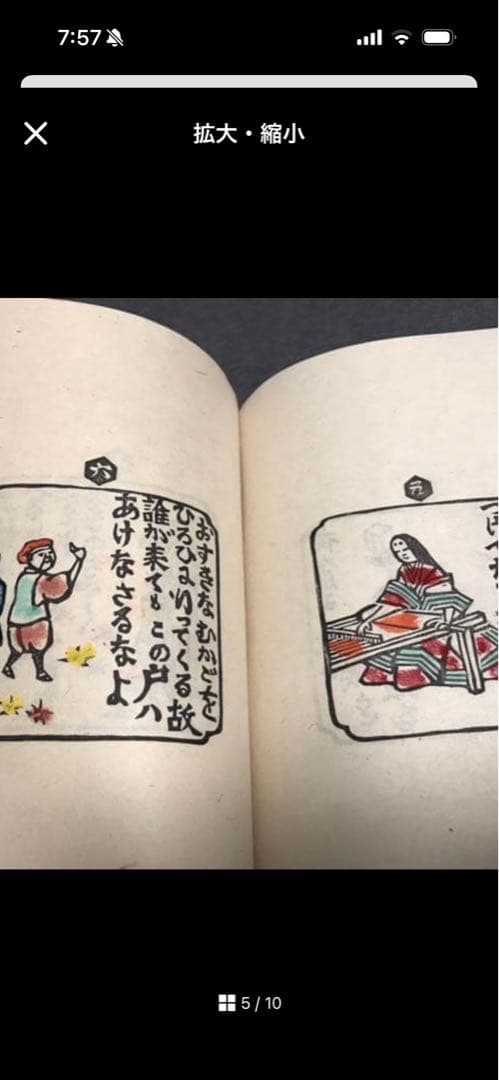 7:57
拡大・縮小
六
おすきな むかごを
ひろひに いってくる故
誰が来ても この戸ハ
あけなさるなよ
5 / 10